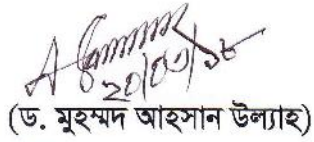 ২০/০৩/১৮
(ড. মুহম্মদ আহসান উল্যাহ)